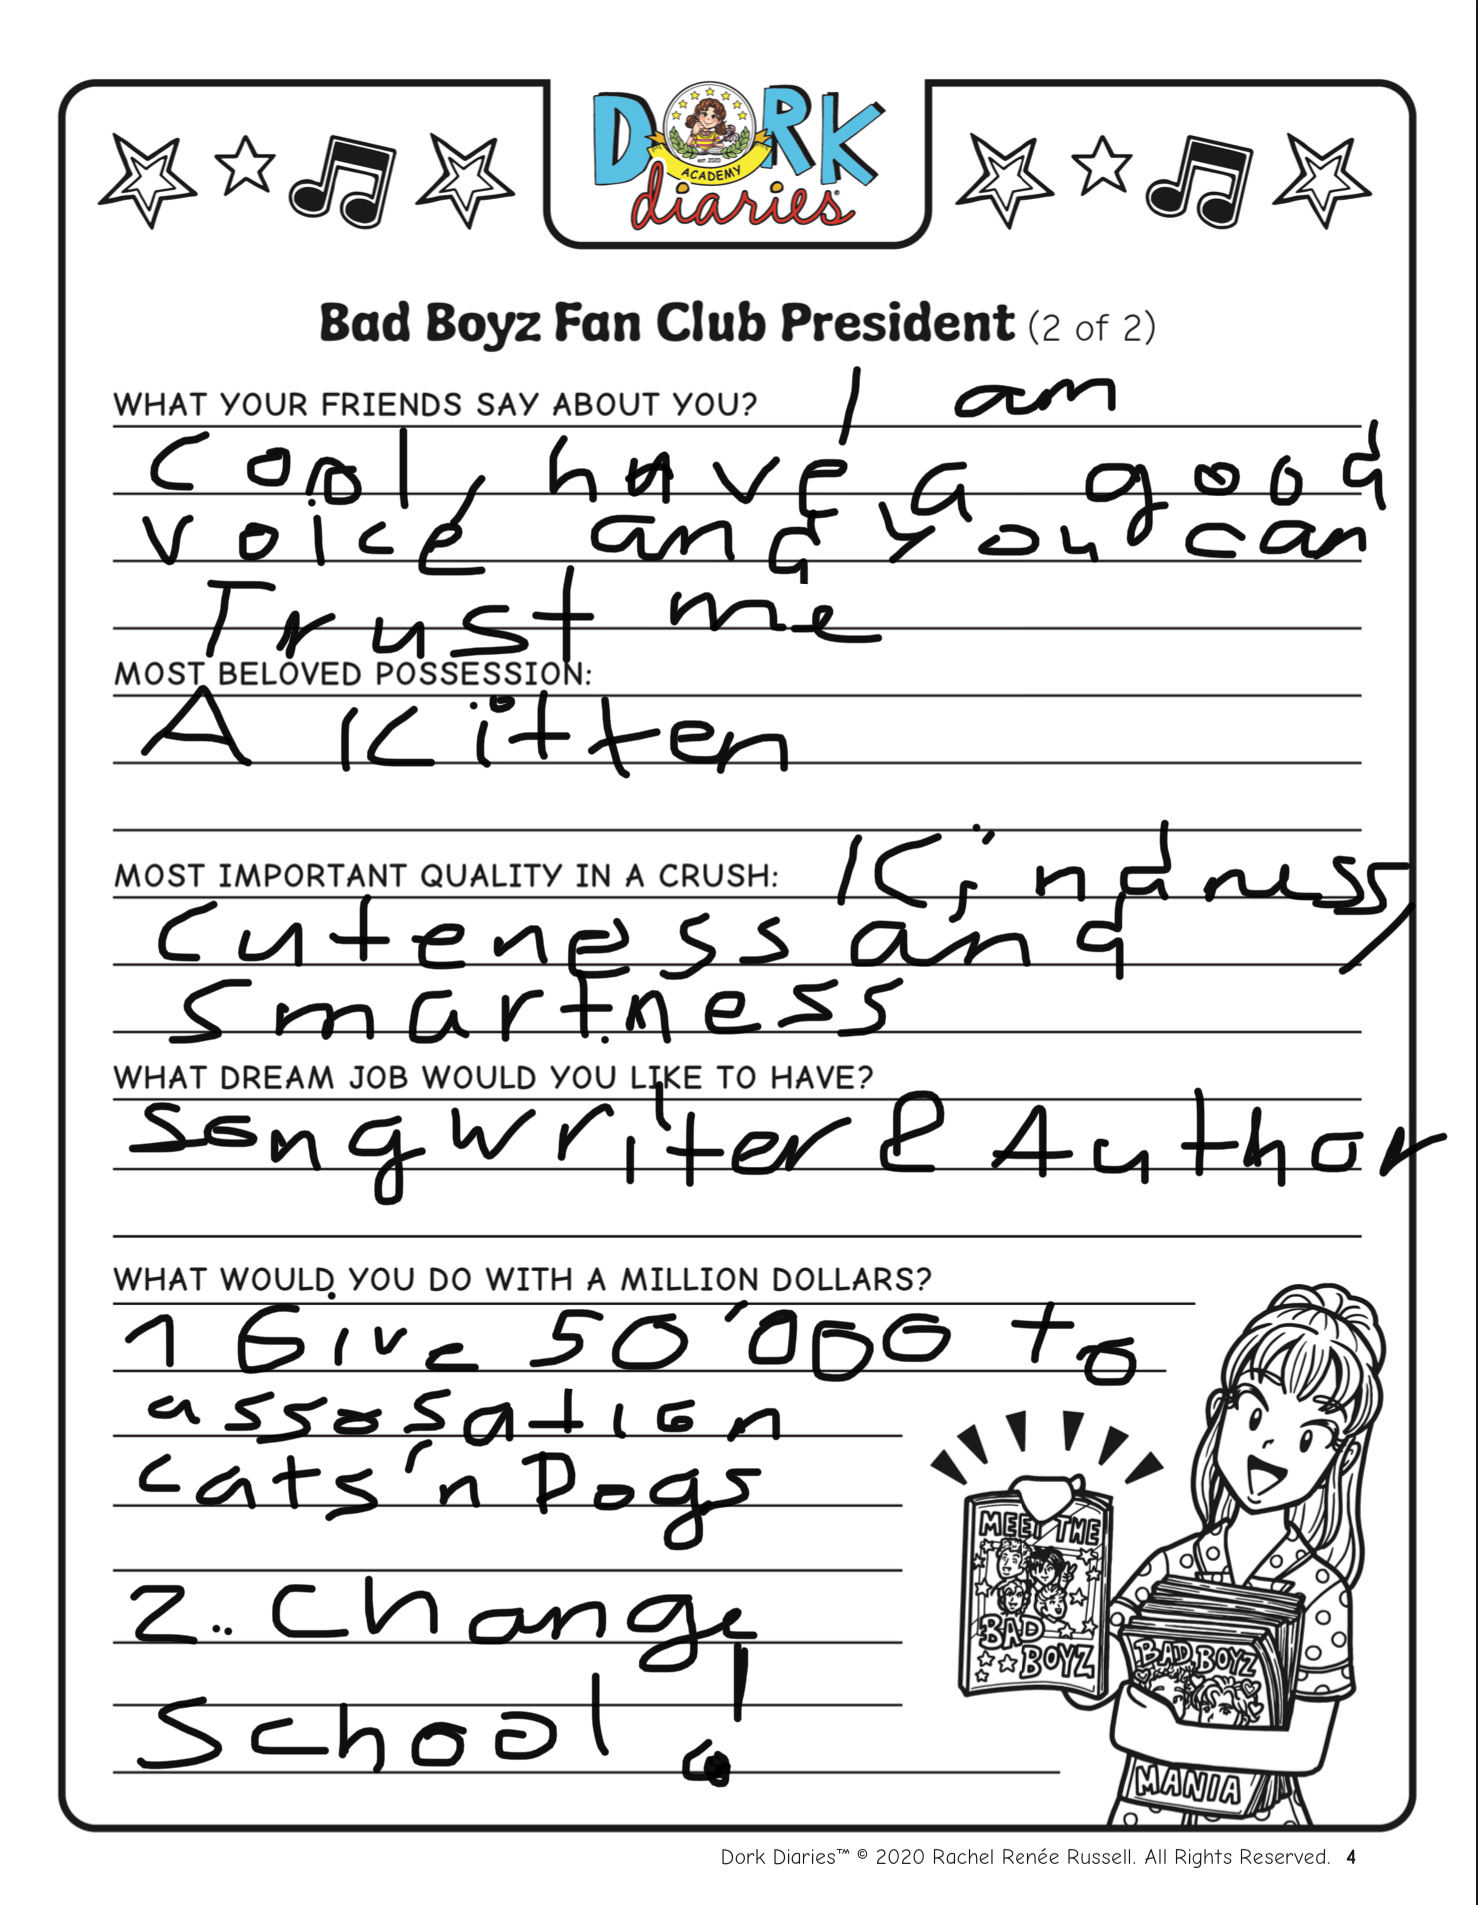 DORK
est. 2020
ACADEMY
diaries
Bad Boyz Fan Club President (2 of 2)
WHAT YOUR FRIENDS SAY ABOUT YOU? I am
Cool, have a good
voice and you can
Trust me
MOST BELOVED POSSESSION:
A Kitten
MOST IMPORTANT QUALITY IN A CRUSH: Kindness,
Cuteness and
Smartness
WHAT DREAM JOB WOULD YOU LIKE TO HAVE?
Songwriter & Author
WHAT WOULD YOU DO WITH A MILLION DOLLARS?
1 Give 50'000 to
assosation
cats 'n Dogs
2.. Change
School!
MEET THE
BAD
BOYZ
BAD BOYZ
MANIA
Dork Diaries™ © 2020 Rachel Renée Russell. All Rights Reserved. 4